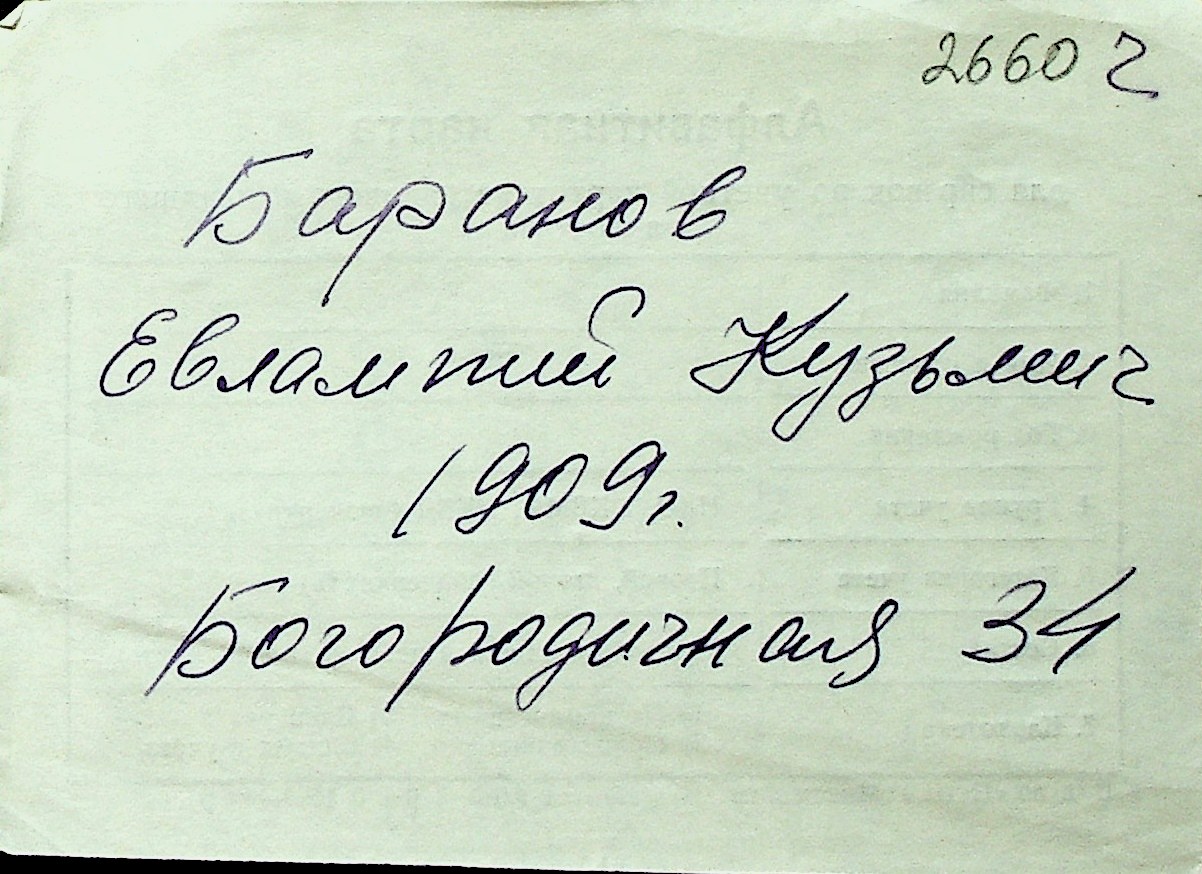 2660 ч
Баранов
Евлампий Кузьмич
1909г.
Богородичная 34